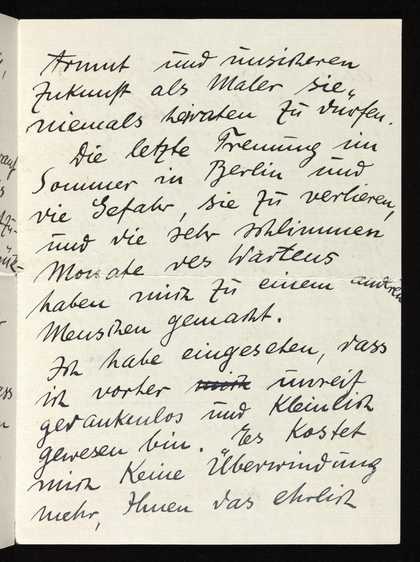 Armut und unsicheren
Zukunft als Maler sie
niemals heiraten zu dürfen.
Die letzte Trennung im
Sommer in Berlin und
die Gefahr, sie zu verlieren,
und die sehr schlimmen
Monate des Wartens
haben mich zu einem anderen
Menschen gemacht.
Ich habe eingesehen, dass
ich vorher unreif
gedankenlos und kleinlich
gewesen bin. Es kostet
mich keine Überwindung
mehr, Ihnen das ehrlich